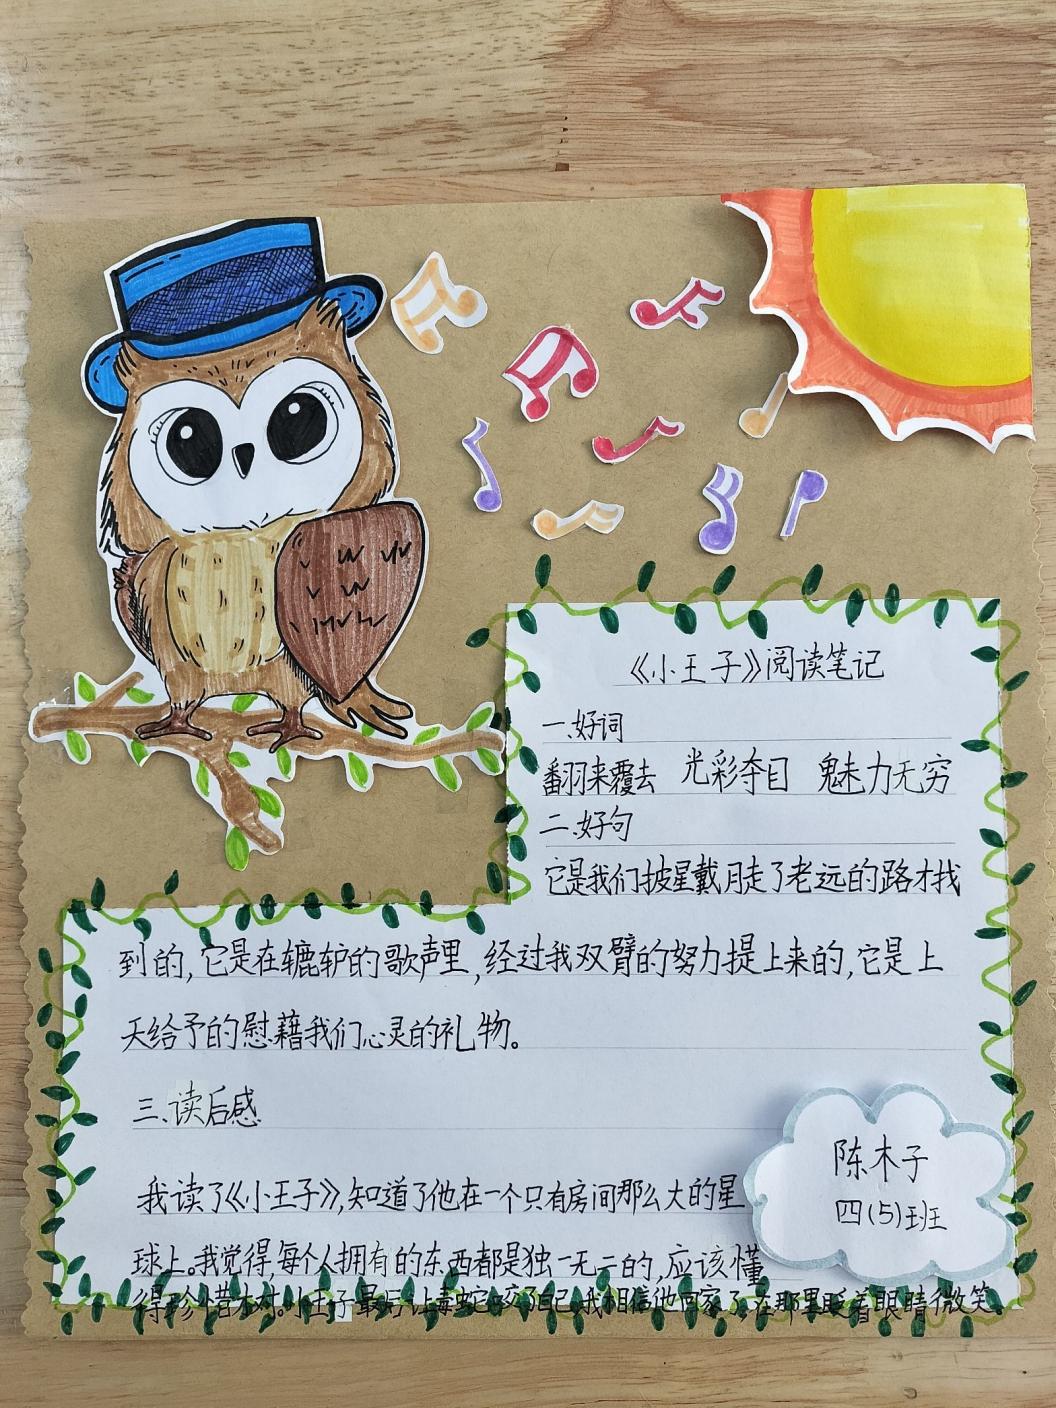 《小王子》阅读笔记
一、好词
翻来覆去 光彩夺目 魅力无穷
二、好句
它是我们披星戴月走了老远的路才找
到的,它是在辘轳的歌声里,经过我双臂的努力提上来的,它是上
天给予的慰藉我们心灵的礼物。
三、读后感
我读了《小王子》,知道了他在一个只有房间那么大的星
球上。我觉得,每个人拥有的东西都是独一无二的,应该懂
得珍惜。小王子最后让毒蛇咬了自己,我相信他回家了,在那里眨着眼睛微笑。
陈木子
四(5)班